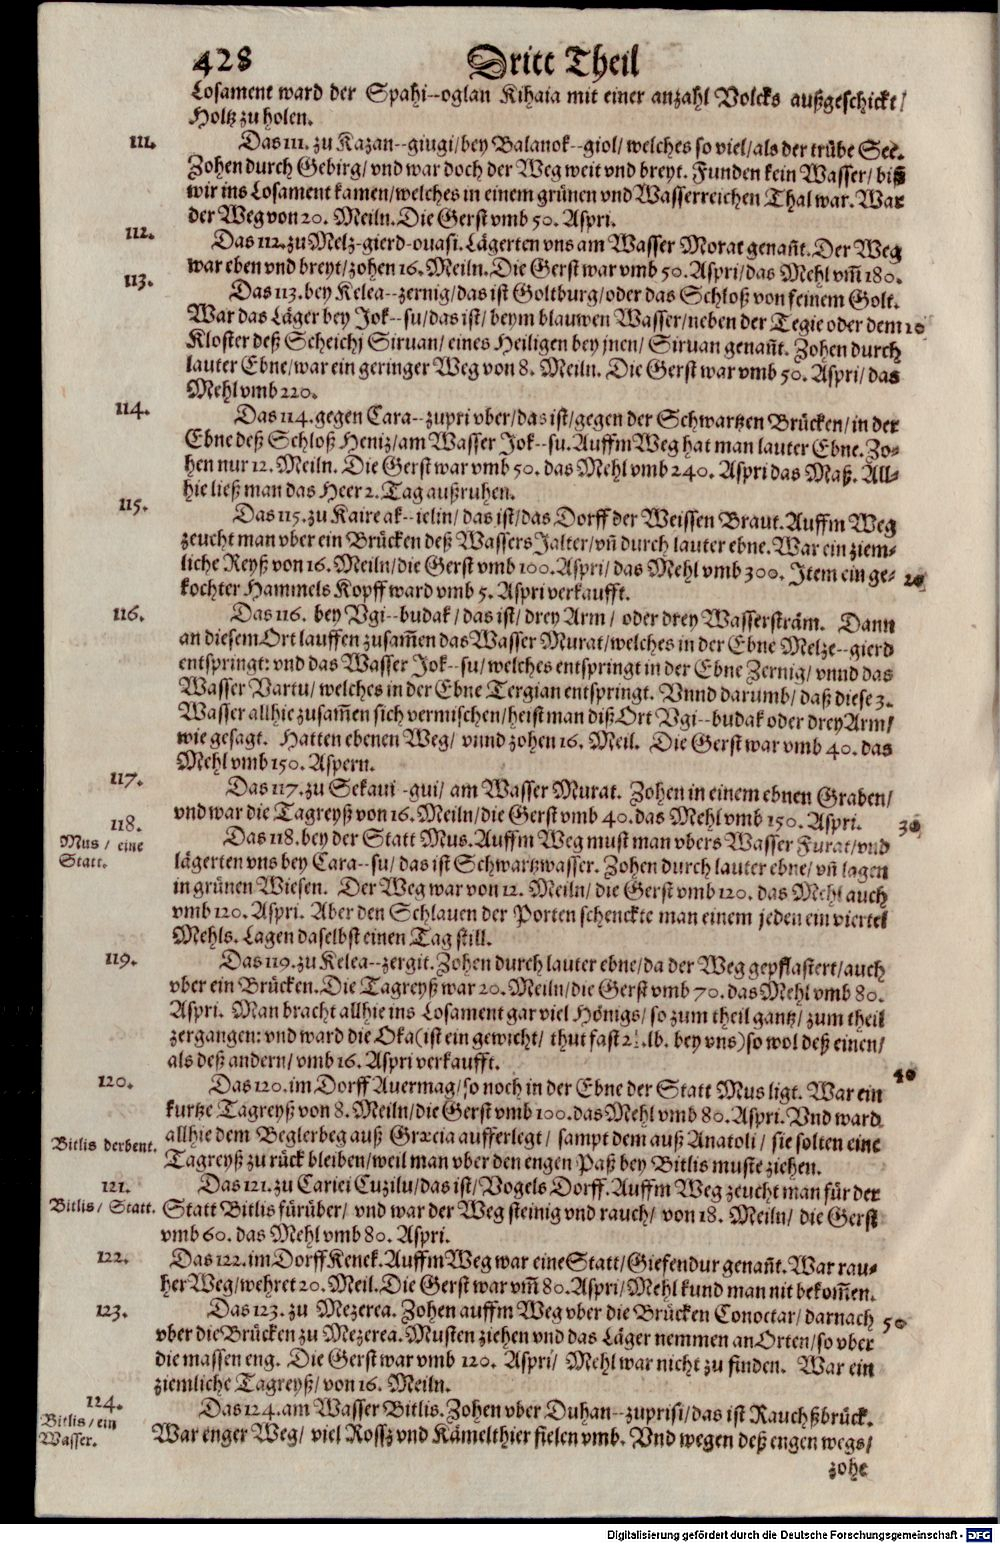 428 Dritt Theil
Losament ward der Spahi--oglan Kihaia mit einer anzahl Volcks außgeschickt/
Holtz zu holen.
111. Das 111. zu Kazan--giugi/ bey Balanok--giol/ welches so viel/ als der trübe See.
Zohen durch Gebirg/ vnd war doch der Weg weit vnd breyt. Funden kein Wasser/ biß
wir ins Losament kamen/ welches in einem grünen vnd Wasserreichen Thal war. War
der Weg von 20. Meiln. Die Gerst vmb 50. Aspri.
112. Das 112. zu Melz-gierd-ouasi. Lägerten vns am Wasser Morat genañt. Der Weg
war eben vnd breyt/ zohen 16. Meiln. Die Gerst war vmb 50. Aspri/ das Mehl vm̃ 180.
113. Das 113. bey Kelea--zernig/ das ist Goltburg/ oder das Schloß von feinem Golt.
War das Läger bey Jok--su/ das ist/ beym blauwen Wasser/ neben der Tegie oder dem 10
Kloster deß Scheichj Siruan/ eines Heiligen bey jnen/ Siruan genañt. Zohen durch
lauter Ebne/ war ein geringer Weg von 8. Meiln. Die Gerst war vmb 50. Aspri/ das
Mehl vmb 220.
114. Das 114. gegen Cara--zupri vber/ das ist/ gegen der Schwartzen Brücken/ in der
Ebne deß Schloß Heniz/ am Wasser Jok--su. Auffm Weg hat man lauter Ebne. Zo-
hen nur 12. Meiln. Die Gerst war vmb 50. das Mehl vmb 240. Aspri das Maß. All-
hie ließ man das Heer 2. Tag außruhen.
115. Das 115. zu Kaire ak--ielin/ das ist/ das Dorff der Weissen Braut. Auffm Weg
zeucht man vber ein Brücken deß Wassers Jalter/ vñ durch lauter ebne. War ein ziem-
liche Reyß von 16. Meiln/ die Gerst vmb 100. Aspri/ das Mehl vmb 300. Item ein ge- 20
kochter Hammels Kopff ward vmb 5. Aspri verkaufft.
116. Das 116. bey Vgi--budak/ das ist/ drey Arm/ oder drey Wasserström. Dann
an diesem Ort lauffen zusam̃en das Wasser Murat/ welches in der Ebne Melze--gierd
entspringt: vnd das Wasser Jok--su/ welches entspringt in der Ebne Zernig/ vnnd das
Wasser Partu/ welches in der Ebne Tergian entspringt. Vnnd darumb/ daß diese 3.
Wasser allhie zusam̃en sich vermischen/ heist man diß Ort Vgi--budak oder drey Arm/
wie gesagt. Hatten ebenen Weg/ vnnd zohen 16. Meil. Die Gerst war vmb 40. das
Mehl vmb 150. Aspern.
117. Das 117. zu Sekaui-gui/ am Wasser Murat. Zohen in einem ebnen Graben/
vnd war die Tagreyß von 16. Meiln/ die Gerst vmb 40. das Mehl vmb 150. Aspri. 30
118. Mus/ eine Statt. Das 118. bey der Statt Mus. Auffm Weg must man vbers Wasser Furat/ vnd
lägerten vns bey Cara--su/ das ist Schwartzwasser. Zohen durch lauter ebne/ vñ lagen
in grünen Wiesen. Der Weg war von 12. Meiln/ die Gerst vmb 120. das Mehl auch
vmb 120. Aspri. Aber den Schlauen der Porten schenckte man einem jeden ein viertel
Mehls. Lagen daselbst einen Tag still.
119. Das 119. zu Kelea--zergit. Zohen durch lauter ebne/ da der Weg gepflastert/ auch
vber ein Brücken. Die Tagreyß war 20. Meiln/ die Gerst vmb 70. das Mehl vmb 80.
Aspri. Man bracht allhie ins Losament gar viel Hönigs/ so zum theil gantz/ zum theil
zergangen: vnd ward die Oka (ist ein gewicht/ thut fast 2½. lb. bey vns) so wol deß einen/
als deß andern/ vmb 16. Aspri verkaufft. 40
120. Das 120. im Dorff Auermag/ so noch in der Ebne der Statt Mus ligt. War ein
kurtze Tagreyß von 8. Meiln/ die Gerst vmb 100. das Mehl vmb 80. Aspri. Vnd ward
Bitlis derbent. allhie dem Beglerbeg auß Græcia aufferlegt/ sampt dem auß Anatoli/ sie solten eine
Tagreyß zu rück bleiben/ weil man vber den engen Paß bey Bitlis muste ziehen.
121. Das 121. zu Cariei Cuzilu/ das ist/ Vogels Dorff. Auffm Weg zeucht man für der
Bitlis/ Statt. Statt Bitlis fürüber/ vnd war der Weg steinig vnd rauch/ von 18. Meiln/ die Gerst
vmb 60. das Mehl vmb 80. Aspri.
122. Das 122. im Dorff Kenek. Auffm Weg war eine Statt/ Giefendur genañt. War rau-
her Weg/ wehret 20. Meil. Die Gerst war vm̃ 80. Aspri/ Mehl kund man nit bekom̃en.
123. Das 123. zu Mezerea. Zohen auffm Weg vber die Brücken Conoctar/ darnach 50
vber die Brücken zu Mezerea. Musten ziehen vnd das Läger nemmen an Orten/ so vber
die massen eng. Die Gerst war vmb 120. Aspri/ Mehl war nicht zu finden. War ein
ziemliche Tagreyß/ von 16. Meiln.
124. Bitlis/ ein Wasser. Das 124. am Wasser Bitlis. Zohen vber Duhan--zuprisi/ das ist Rauchßbrück.
War enger Weg/ viel Rossz vnd Kämelthier fielen vmb. Vnd wegen deß engen wegs/
zohe
Digitalisierung gefördert durch die Deutsche Forschungsgemeinschaft - DFG